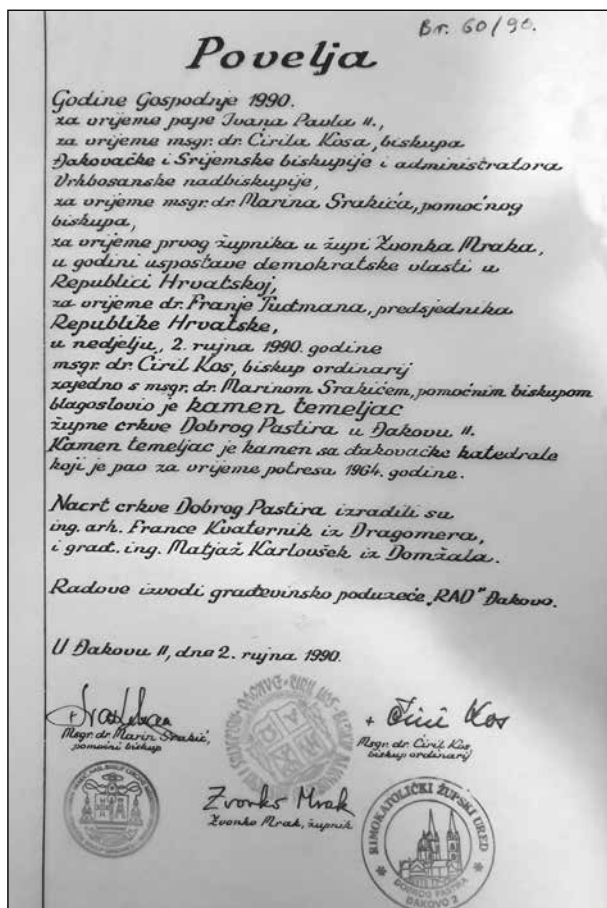 Br. 60/90.
Povelja
Godine Gospodnje 1990.
za vrijeme pape Ivana Pavla II.,
za vrijeme msgr. dr. Ćirila Kosa, biskupa
Đakovačke i Srijemske biskupije i administratora
Vrhbosanske nadbiskupije,
za vrijeme msgr. dr. Marina Srakića, pomoćnog
biskupa,
za vrijeme prvog župnika u župi Zvonka Mraka,
u godini uspostave demokratske vlasti u
Republici Hrvatskoj,
za vrijeme dr. Franje Tuđmana, predsjednika
Republike Hrvatske,
u nedjelju, 2. rujna 1990. godine
msgr. dr. Ćiril Kos, biskup ordinarij
zajedno s msgr. dr. Marinom Srakićem, pomoćnim biskupom
blagoslovio je kamen temeljac
župne crkve Dobrog Pastira u Đakovu II.
Kamen temeljac je kamen sa đakovačke katedrale
koji je pao za vrijeme potresa 1964. godine.
Nacrt crkve Dobrog Pastira izradili su
ing. arh. France Kvaternik iz Dragomera,
i građ. ing. Matjaž Karlovšek iz Domžala.
Radove izvodi građevinsko poduzeće „RAD" Đakovo.
U Đakovu II, dne 2. rujna 1990.
Msgr. dr. Marin Srakić,
pomoćni biskup
+ Ćiril Kos
Msgr. dr. Ćiril Kos,
biskup ordinarij
Zvonko Mrak
Zvonko Mrak, župnik
RIMOKATOLIČKI ŽUPSKI URED
DOBROG PASTIRA
ĐAKOVO 2